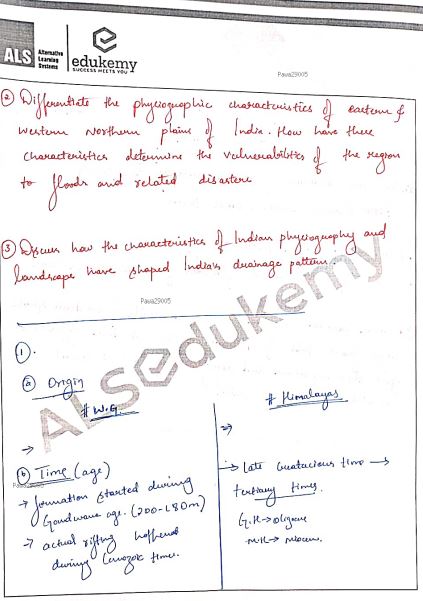 ALS Alternative Learning Systems
edukemy
SUCCESS MEETS YOU
Pawa29005
② Differentiate the physiographic characteristics of eastern &
western Northern plains of India. How have these
characteristics determine the vulnerabilities of the region
to floods and related disasters
③ Discuss how the characteristics of Indian physiography and
landscape have shaped India's drainage pattern.
Pawa29005
ALS edukemy
①.
ⓐ Origin
# W.G.
→
ⓑ Time (age)
→ formation started during
Gondwana age. (200-180m)
→ actual rifting
during times.
# Himalayas
→
→ Late time →
tertiary times.
G.H →
M.H →